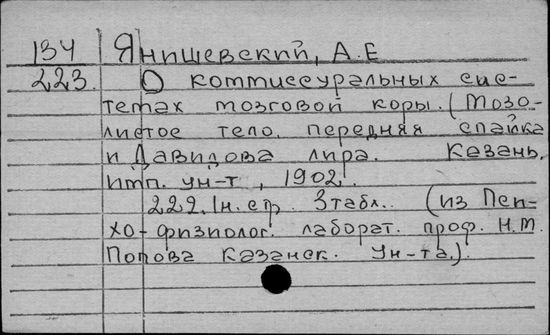 134 Янишевский, А.Е
223. О коммиссуральных сис-
темах мозговой коры. (Мозо-
листое тело. передняя спайка
и Давидова лира. Казань.
Имп. ун-т, 1902.
222. 1н. стр. 3табл. (из Пси-
хо-физиолог. лаборат. проф. Н.М.
Попова Казанск. Ун-та.).